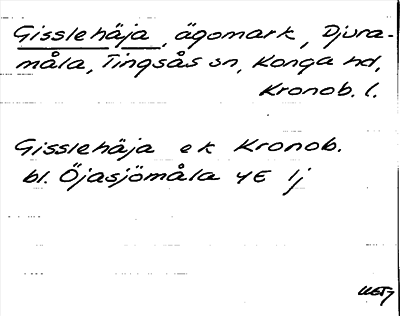 Gisslehäja, ägomark, Djura-
måla, Tingsås sn, Konga hd,
Kronob. l.
Gisslehäja ek Kronob.
bl. Öjasjömåla 4E 1j